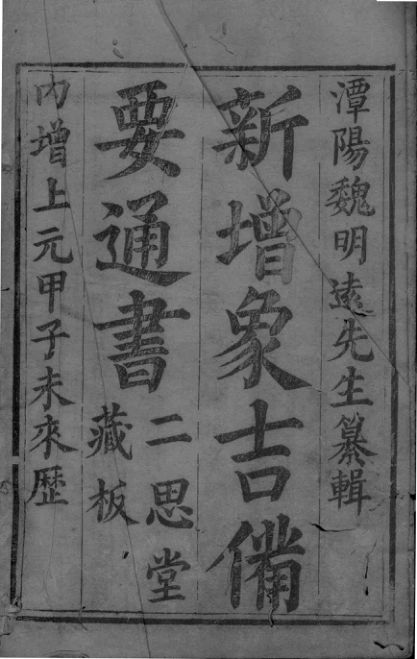 潭陽魏明遠先生纂輯
新增象吉備
要通書
二思堂
藏板
內增上元甲子未來歷